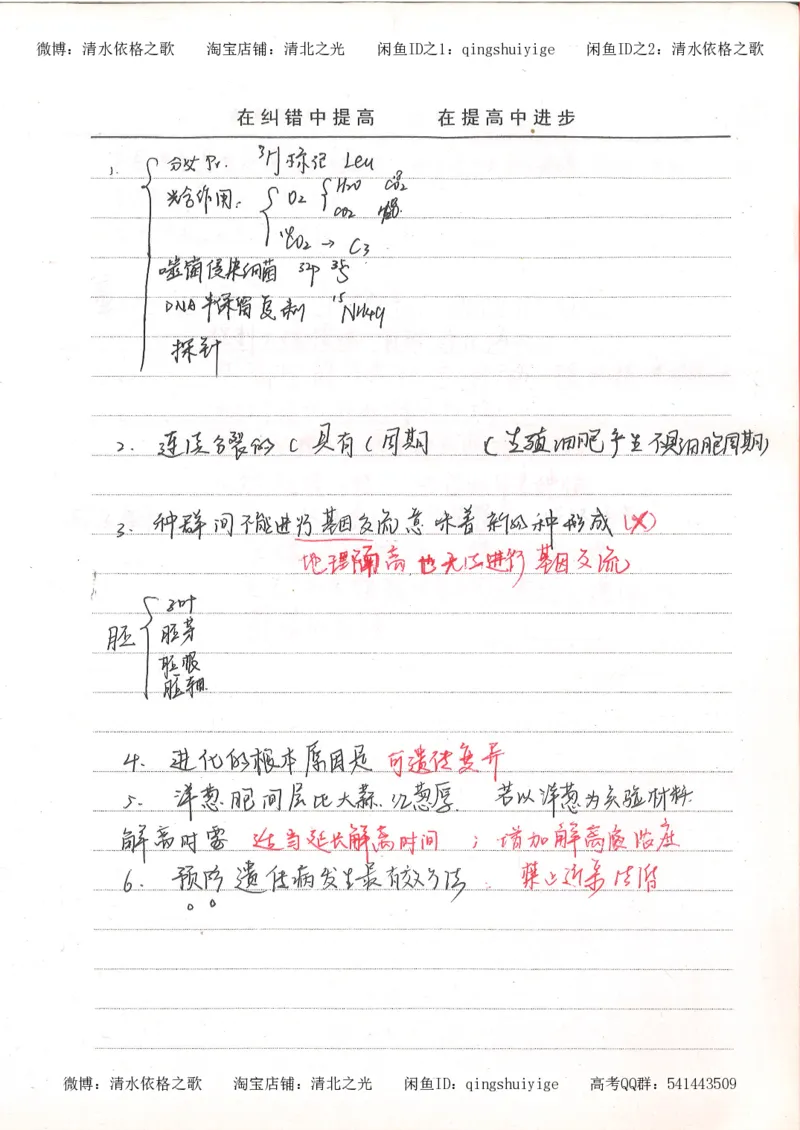 微博：清水依格之歌 淘宝店铺：清北之光 闲鱼ID之1：qingshuiyige 闲鱼ID之2：清水依格之歌
在纠错中提高 在提高中进步
1. 分泌Pr. ³H标记 Leu
光合作用： O2 H2O
CO2
¹⁴CO2 → C3
噬菌侵染细菌 32P 35S
DNA半保留复制 ¹⁵NH4Cl
探针
2. 连续分裂的C具有C周期 (生殖细胞产生不具细胞周期)
3. 种群间不能进行基因交流意味着新物种形成 (×)
地理隔离也无法进行基因交流
胚 子叶
胚芽
胚根
胚轴
4. 进化的根本原因是 可遗传变异
5. 洋葱胞间层比大蒜.红葱厚. 若以洋葱为实验材料
解离时需 适当延长解离时间 ；增加解离液浓度
6. 预防遗传病发生最有效方法： 禁止近亲结婚
微博：清水依格之歌 淘宝店铺：清北之光 闲鱼ID：qingshuiyige 高考QQ群：541443509